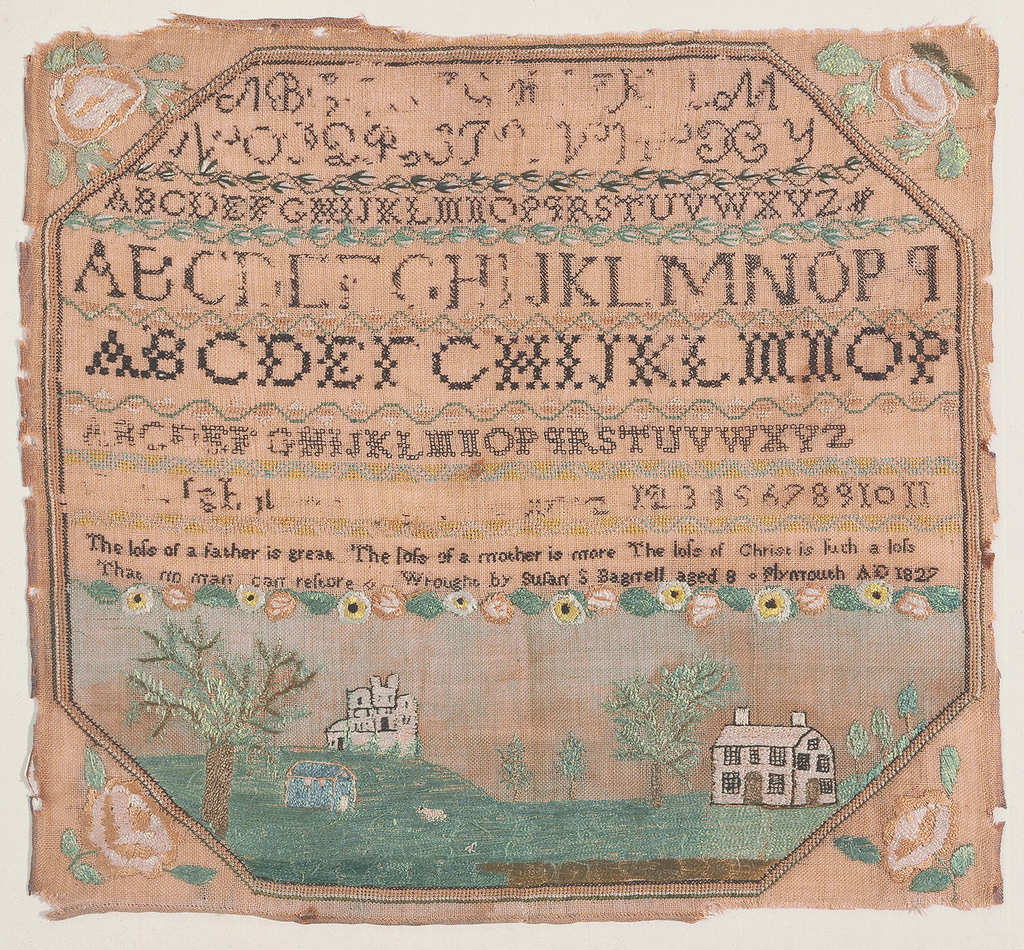 A B K L M
N O Q T V X Y
ABCDEFGHIJKLMNOPqRSTUVWXYZ
ABCDEFGHIJKLMNOPq
ABCDEFGHIJKLMNOP
ABCDEFGHIJKLMNOPqRSTUVWXYZ
12 3 4 5 6 7 8 9 10 11
The loſs of a father is great The loſs of a mother is more The loſs of Christ is ſuch a loſs
That no man can reſtore Wrought by Susan S Bagnell aged 8 Plymouth AD 1827